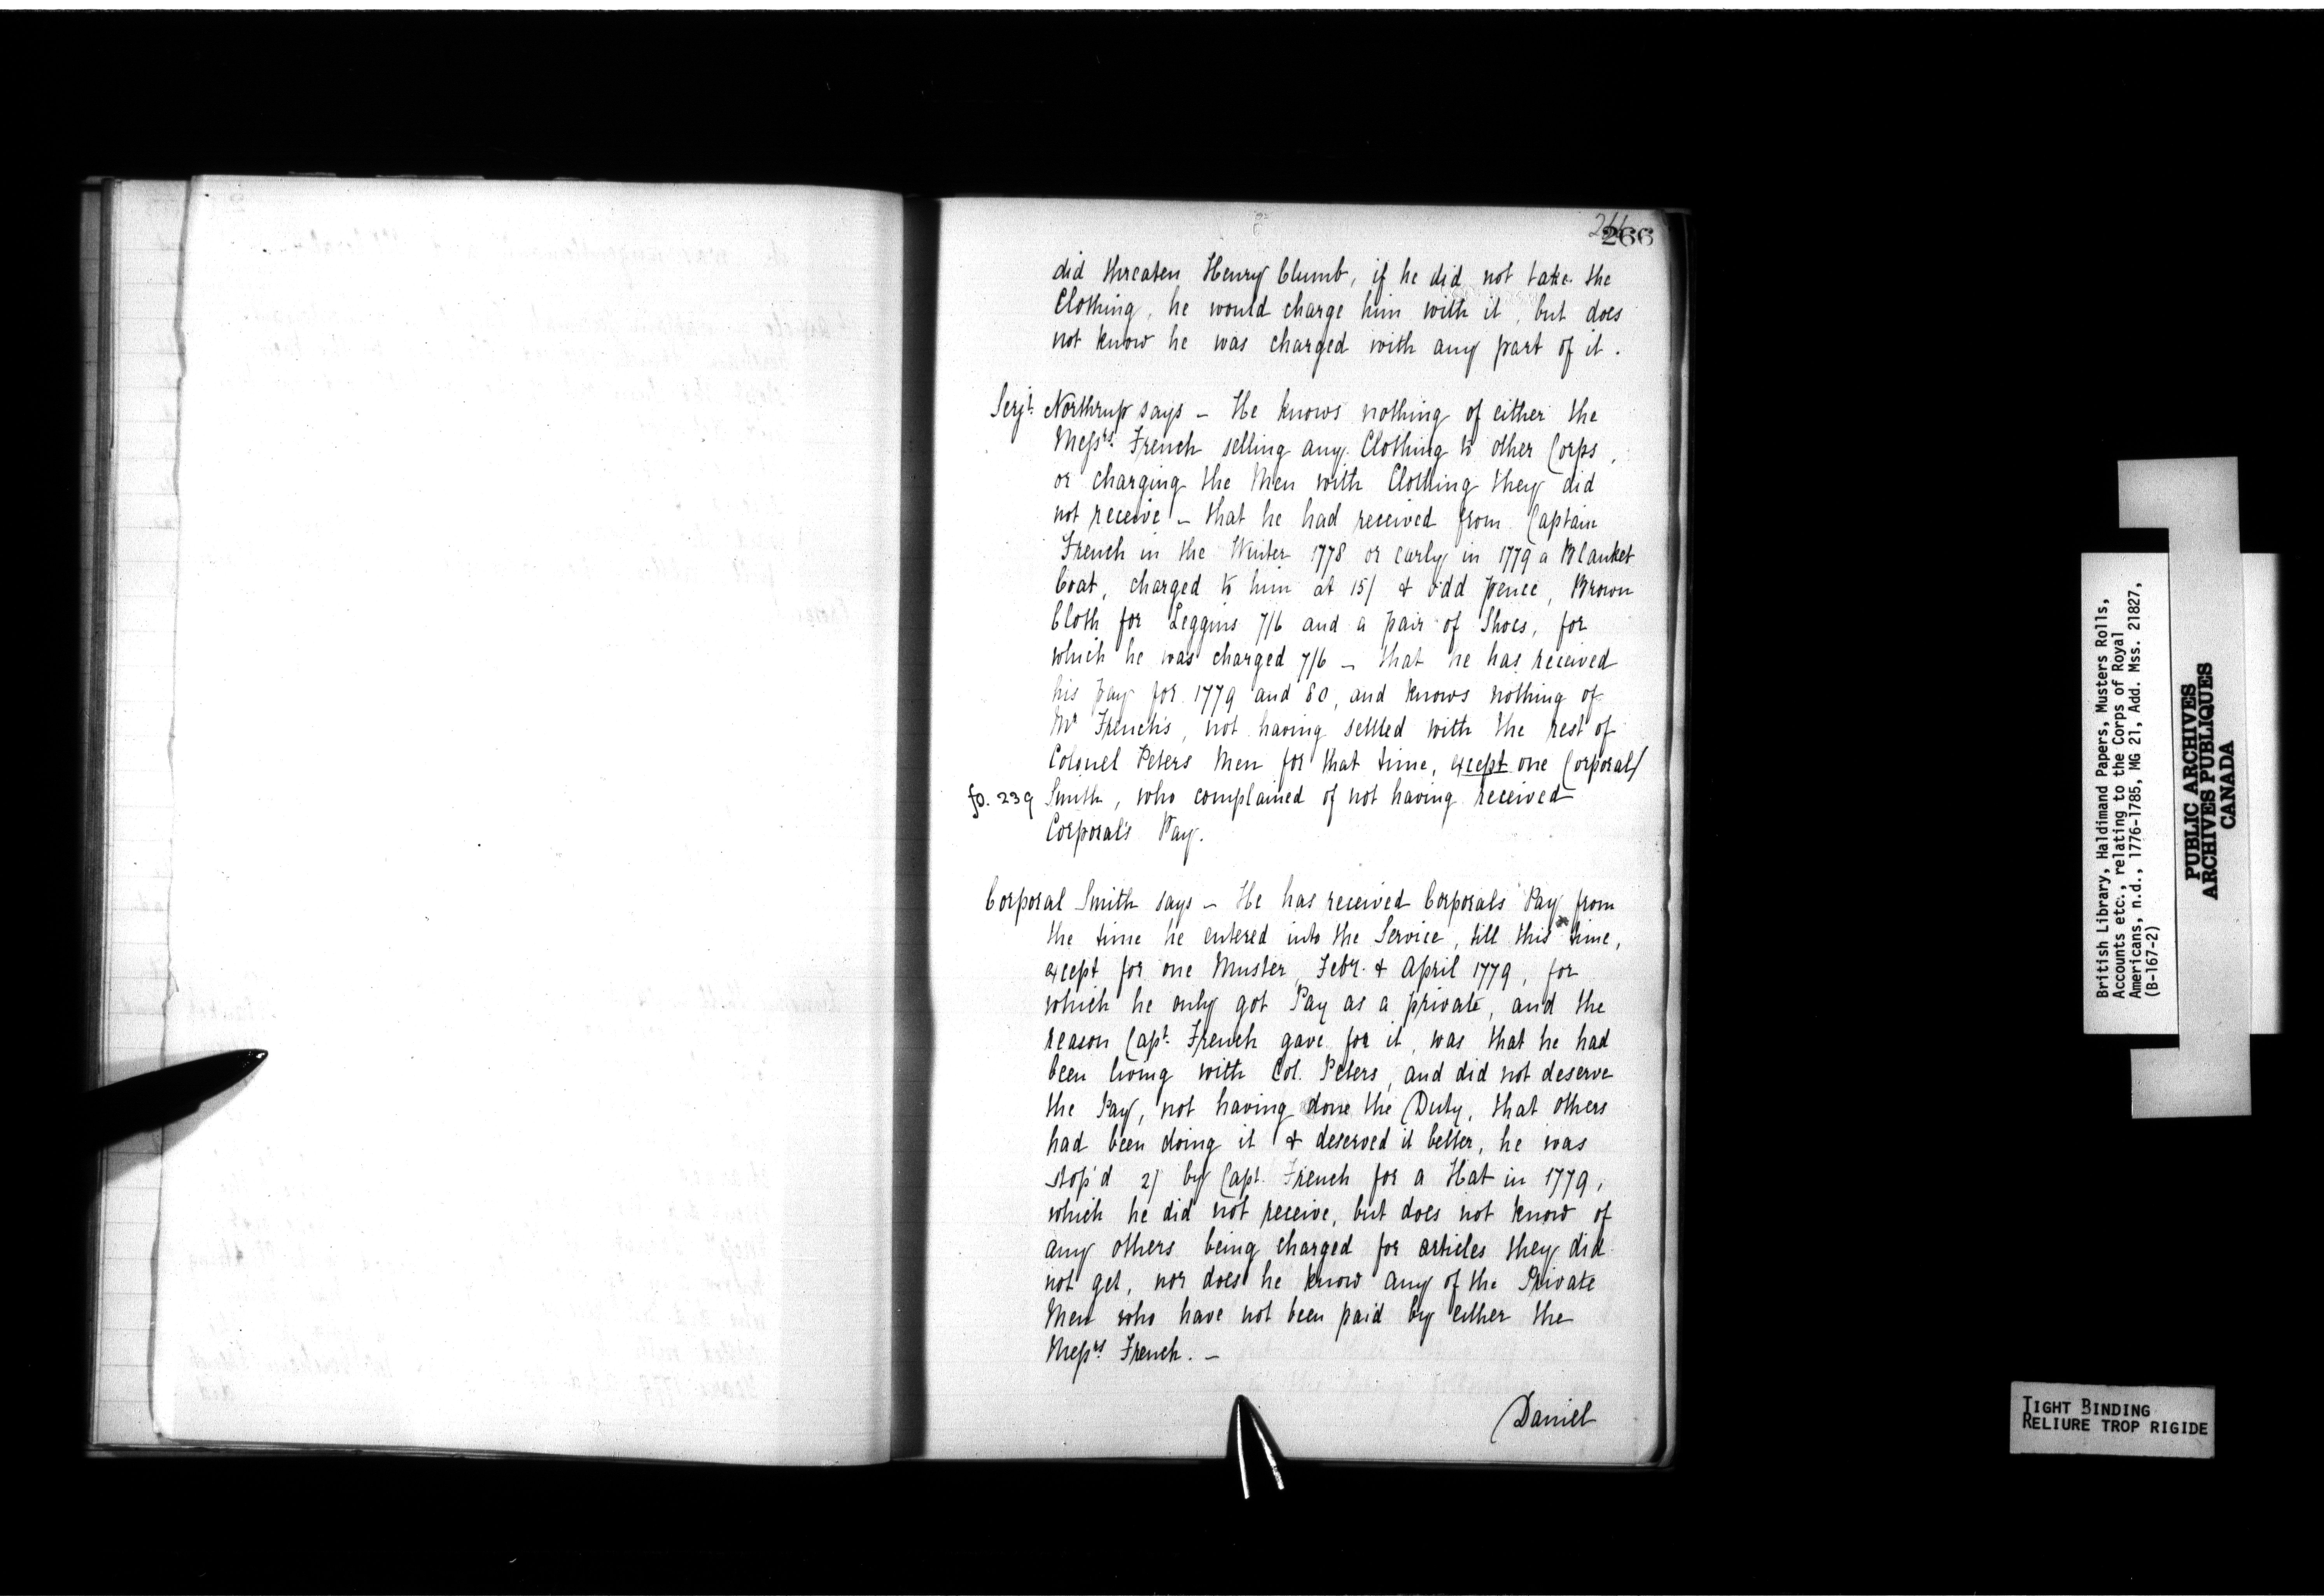 266
266
did threaten Henry Clumb, if he did not take the
Clothing, he would charge him with it, but does
not know he was charged with any part of it.
Serjt. Northrup says - He knows nothing of either the
Messrs. French selling any Clothing to other Corps,
or charging the Men with Clothing they did
not receive - that he had received from Captain
French in the Winter 1778 or early in 1779 a Blanket
Coat, charged to him at 15/ & odd pence, Brown
Cloth for Leggins 7/6 and a pair of Shoes, for
which he was charged 7/6 - that he has received
his pay for 1779 and 80, and knows nothing of
Mr French's, not having settled with the rest of
Colonel Peters Men for that time, except one Corporal
fo. 239 Smith, who complained of not having received
Corporal's Pay.
Corporal Smith says - He has received Corporals Pay from
the time he entered into the Service, till this time,
except for one Muster, Febr. & April 1779, for
which he only got Pay as a private, and the
reason Capt. French gave for it, was that he had
been living with Col. Peters, and did not deserve
the Pay, not having done the Duty, that others
had been doing it & deserved it better, he was
stop'd 2/ by Capt. French for a Hat in 1779,
which he did not receive, but does not know of
any others being charged for articles they did
not get, nor does he know any of the Private
Men who have not been paid by either the
Messrs. French. -
Daniel
British Library, Haldimand Papers, Musters Rolls,
Accounts etc., relating to the Corps of Royal
Americans, n.d., 1776-1785, MG 21, Add. Mss. 21827,
(B-167-2)
PUBLIC ARCHIVES
ARCHIVES PUBLIQUES
CANADA
TIGHT BINDING
RELIURE TROP RIGIDE